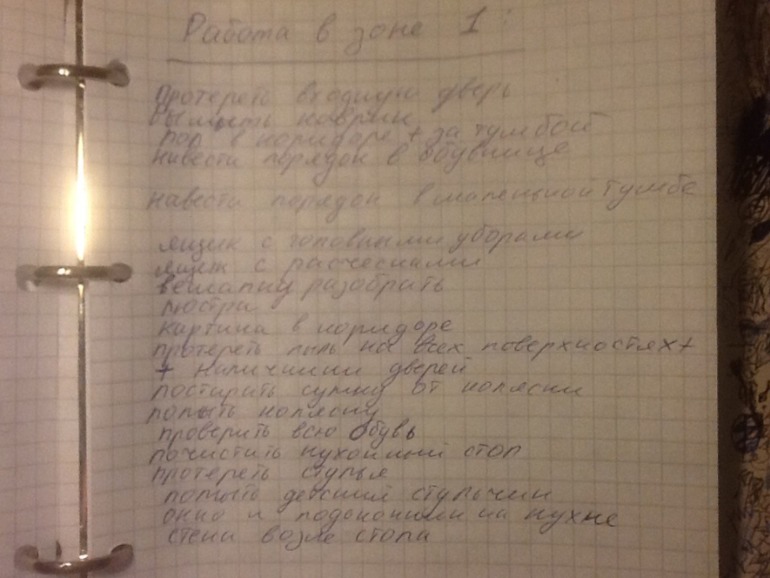 Работа в зоне 1:
протереть входную дверь
вымыть коврик
пол в коридоре + за тумбой
навести порядок в обувнице
навести порядок в маленькой тумбе
ящик с головными уборами
ящик с расческами
вешалку разобрать
люстра
картина в коридоре
протереть пыль на всех поверхностях +
+ наличники дверей
постирать сумку от коляски
помыть коляску
проверить всю обувь
почистить кухонный стол
протереть стулья
помыть детский стульчик
окно и подоконник на кухне
стена возле стола